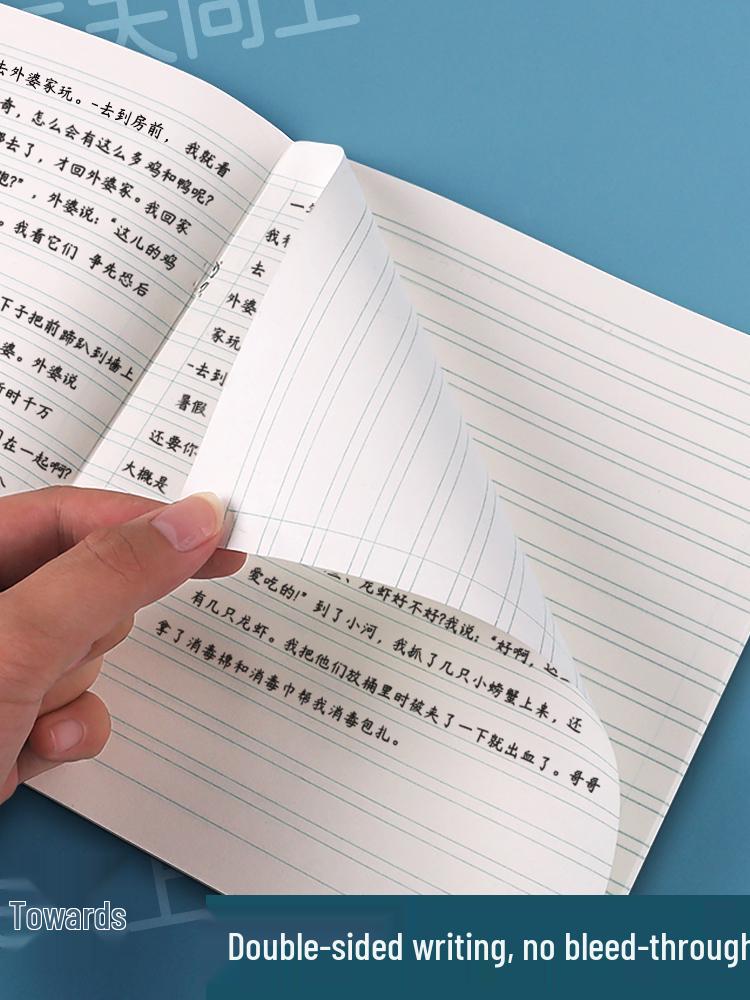 天向上
去外婆家玩。-去到房前，我就看
奇，怎么会有这么多鸡和鸭呢?
那去了，才回外婆家。我回家
跑?"，外婆说："这儿的鸡
。我看它们 争先恐后
下子把前蹄趴到墙上
婆。外婆说
时千万
在一起啊?
我
去
外婆
家玩
-去到
暑假
还要你
大概是
龙虾好不好?我说："好啊，
爱吃的!"到了小河，我抓了几只小螃蟹上来，还
有几只龙虾。我把他们放桶里时被夹了一下就出血了。哥哥
拿了消毒棉和消毒巾帮我消毒包扎。
上
Towards
Double-sided writing, no bleed-through